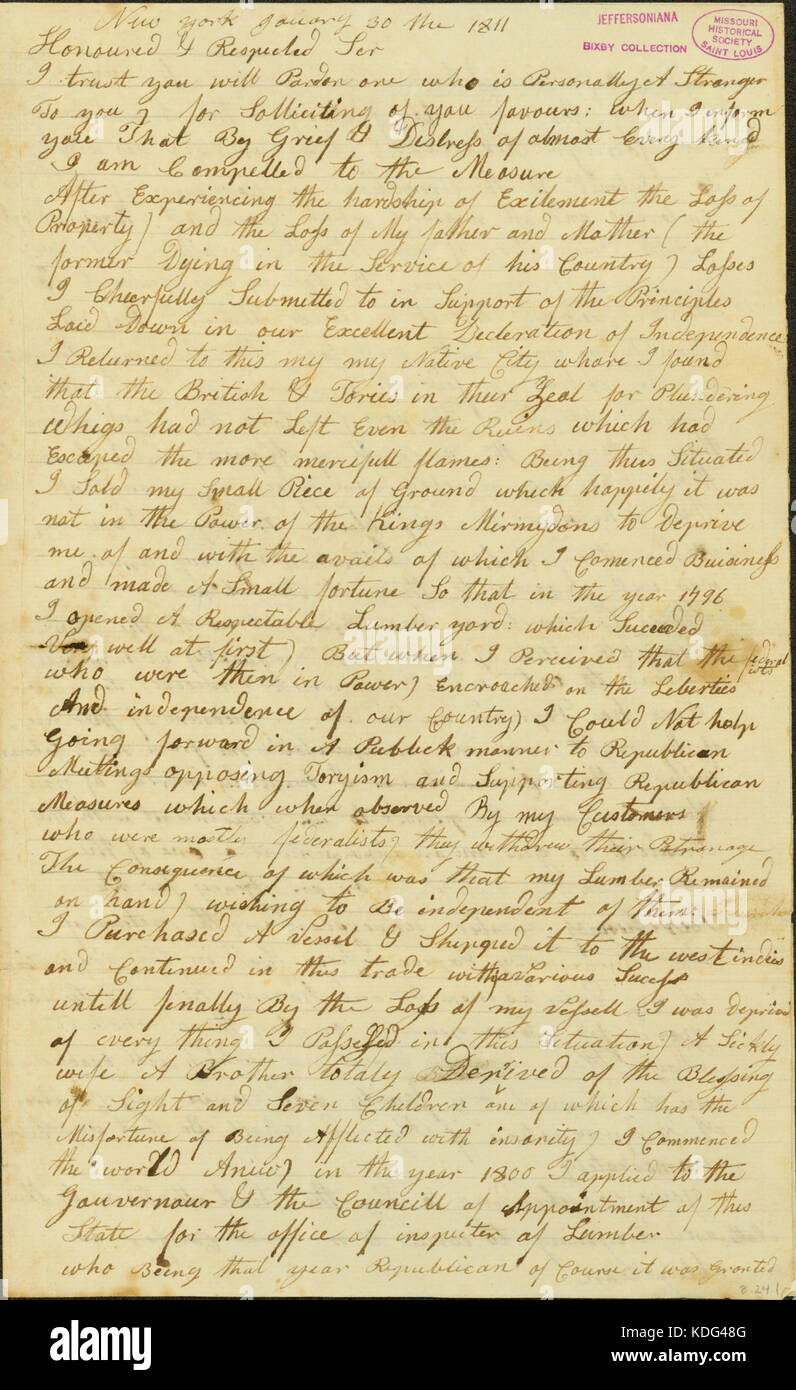 New york January 30 the 1811
JEFFERSONIANA
BIXBY COLLECTION
MISSOURI
HISTORICAL
SOCIETY
SAINT LOUIS
Honoured & Respected Ser
I trust you will Pardon one who is Personally A Stranger
To you, for Solliciting of you favours: when I inform
you That By Grief & Distress of almost Every kind
I am Compelled to the Measure
After Experiencing the hardship of Exilement the Loss of
Property) and the Loss of My father and Mother (the
former Dying in the Service of his Country) Losses
I Cheerfully Submitted to in Support of the Principles
Laid Down in our Excellent Decleration of Independence
I Returned to this my my Native City whare I found
that the British & Tories in their Zeal for Plundering
Whigs had not Left Even the Ruins which had
Escaped the more mercifull flames: Being thus Situated
I Sold my Small Piece of Ground which happily it was
not in the Power of the Kings Mirmydons to Deprive
me of and with the avails of which I Comenced Buisiness
and made A Small fortune So that in the year 1796
I opened A Respectable Lumber yard: which Succeded
Very well at first) But when I Perceived that the
who were then in Power) Encroached on the Leberties
And independence of our Country) I Could Not help
Going forward in A Publick manner to Republican
Meetings opposing Toryism and Supporting Republican
Measures which when observed By my Customers
who were mostly federalists) they withdrew their Patronage
The Consequence of which was that my Lumber Remained
on hand) wishing to Be independent of them
I Purchased A Vessil & Shipped it to the west indies
and Continued in this trade with various Sucess
untill finally By the Loss of my Vessell I was Deprived
of every thing I Possessed in this Situation) A Sickly
wife A Brother totaly Derived of the Blessing
of Sight and Seven Children one of which has the
Misfortune of Being Afflicted with insanity) I Commenced
the world Aniew) in the year 1800 I applied to the
Gouvernour & the Councill of Appointment of this
State for the office of inspecter of Lumber
who Being that year Republican of Course it was Granted
8.24.1
alamy
Image ID: KDG48G
www.alamy.com